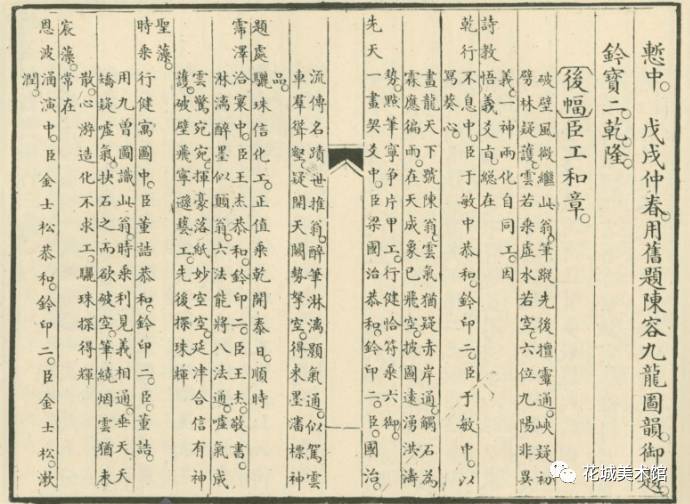 慙中。戊戌仲春。用舊題陳容九龍圖韻。御題
鈐寶二。乾隆。
後幅臣工和章。
破壁風微繼此翁。筆蹤先後擅靈通。峽疑初
劈林疑護。雲若乘虛水若空。六位九陽非異
義。一神兩化自同工。因
詩教悟義爻。總在
乾行不息中。臣于敏中恭和。鈐印二。臣于敏中。以
寫葵心。
畫龍天下號陳翁。雲氣猶疑赤岸通。觸石為
霖應徧雨。在天成象已飛空。披圖遠湧洪濤
勢。點筆寧爭片甲工。行健恰符乘六御。
先天一畫契爻中。臣梁國治恭和。鈐印二。臣國治。
流傳名蹟世推翁。醉筆淋漓顥氣通。似駕雲
車羣壑。疑開天闕勢拏空。得來墨瀋標神
品。
題處驪珠信化工。正值乘乾開泰日。順時
霈澤洽寰中。臣王杰恭和。鈐印二。臣王杰。敬書。
淋漓醉墨似顛翁。六法能將八法通。噓氣成
雲驚宛宛。揮豪落紙妙空空。延津合信有神
護。破壁飛寧遜藝工。先後探珠輝
聖藻。
時乘行健寓圖中。臣董誥恭和。鈐印二。臣董誥。
用九曾圖識此翁。時乘利見義相通。垂天夭
矯疑噓氣。抉石之而欲破空。筆繞烟雲猶未
散。心游造化不求工。驪珠探得輝
宸藻。常在
恩波涌演中。臣金士松恭和。鈐印二。臣金士松。漱
潤。
花城美术馆